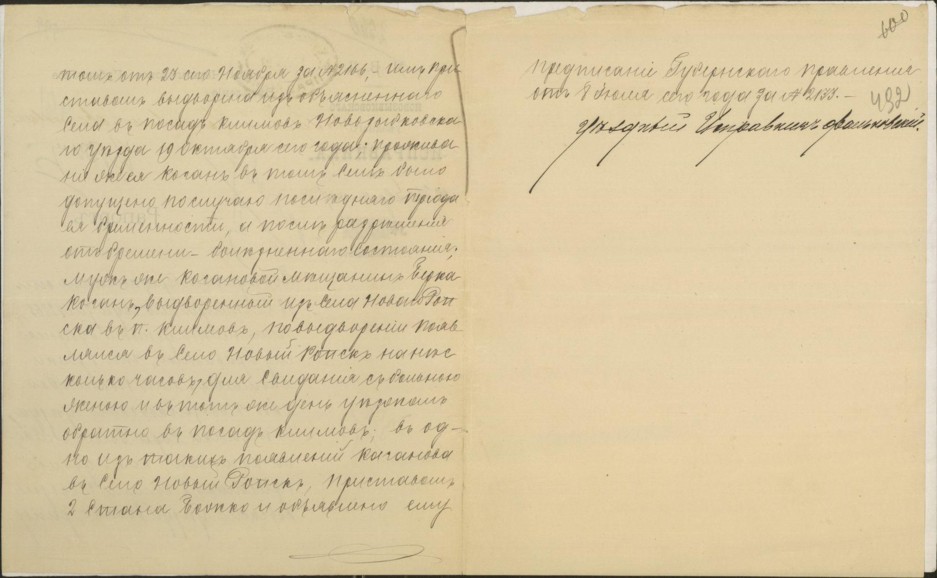 томъ отъ 28 сего Ноября за № 2166,- имъ При-
ставомъ выдворена изъ объясненнаго
села въ посадъ Климовъ Новозыбковска-
го уѣзда 19 октября сего года; прожива
ніе же ея Косанъ въ томъ селѣ было
допущено по случаю послѣдняго періода
ея беременности, а послѣ разрѣшенія
отъ бремени - болѣзненнаго состоянія;
мужъ же Косановой мѣщанинъ Берка
Косанъ, выдворенный изъ села Новаго Роп
ска въ п. Климовъ, по выдвореніи появ
лялся въ село Новый Ропскъ на нѣс
колько часовъ, для свиданія съ больною
женою и въ тотъ же день уѣзжалъ
обратно въ посадъ Климовъ; въ од-
но изъ такихъ появленій Касанова
въ село Новый Ропскъ, Приставомъ
2 Стана Бойко и объявлено ему
600
предписаніе Губернскаго Правленія
отъ 8 Іюля сего года за № 2137.-
492
Уѣздный Исправникъ